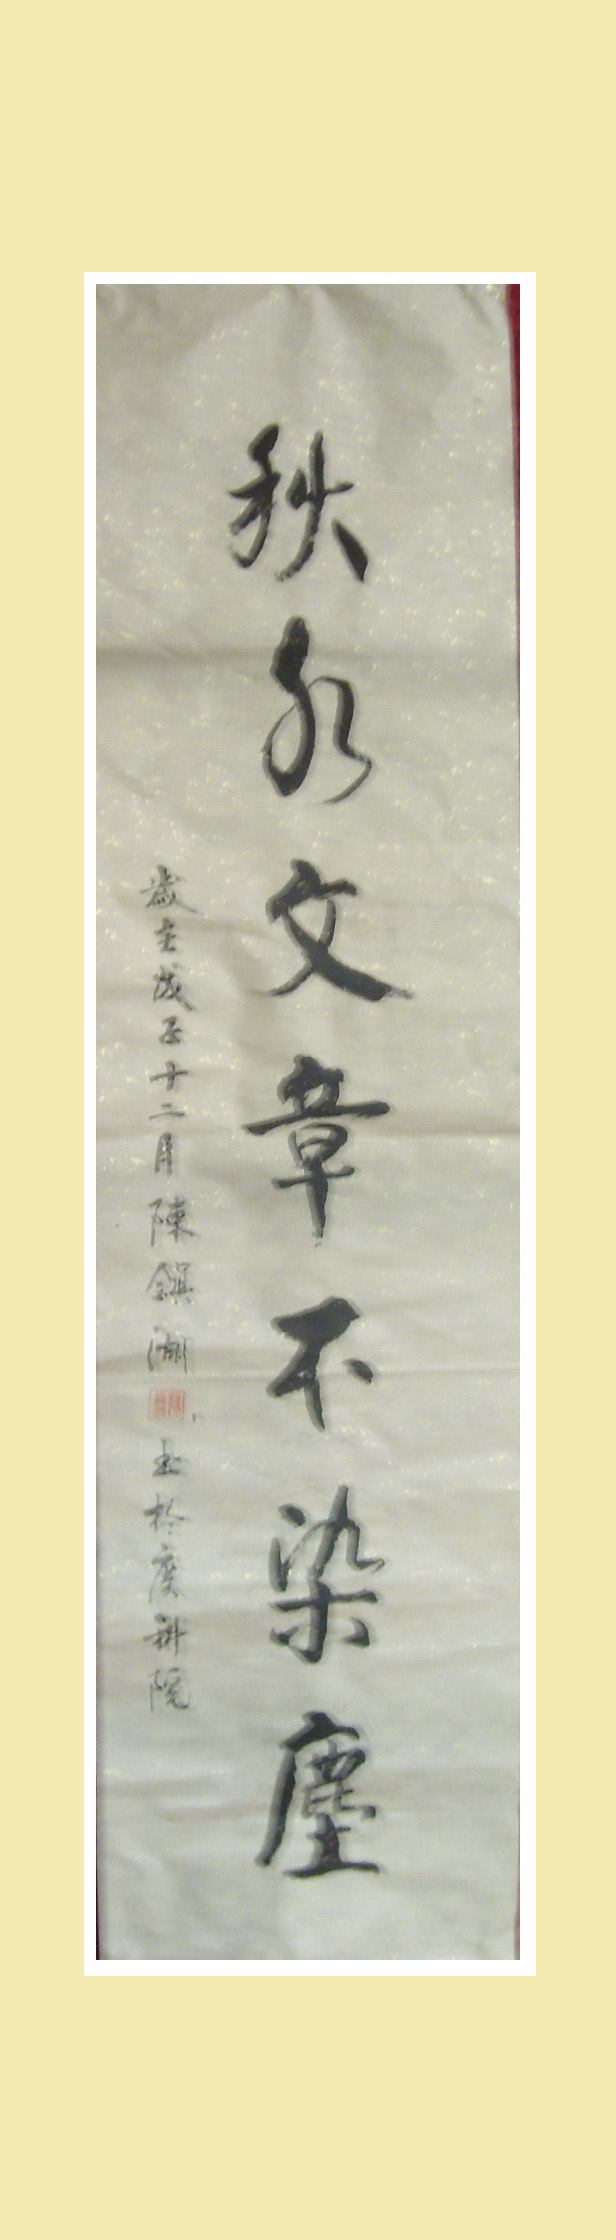 秋水文章不染塵
歲在戊子十二月陳鎮湖書於廣科院